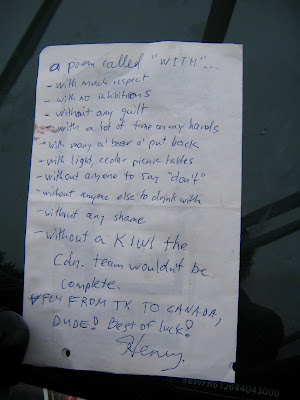 a poem called "WITH"...
- with much respect
- with no inhibitions
- without any guilt
- with a lot of time on my hands
- with many a' beer a' put back
- with light, cedar picnic tables
- without anyone to say "don't"
- without anyone else to drink with
- without any shame
- without a KIWI the
Cdn. team wouldn't be
complete.
FLY FROM TK TO CANADA,
DUDE! Best of luck!
Henry.